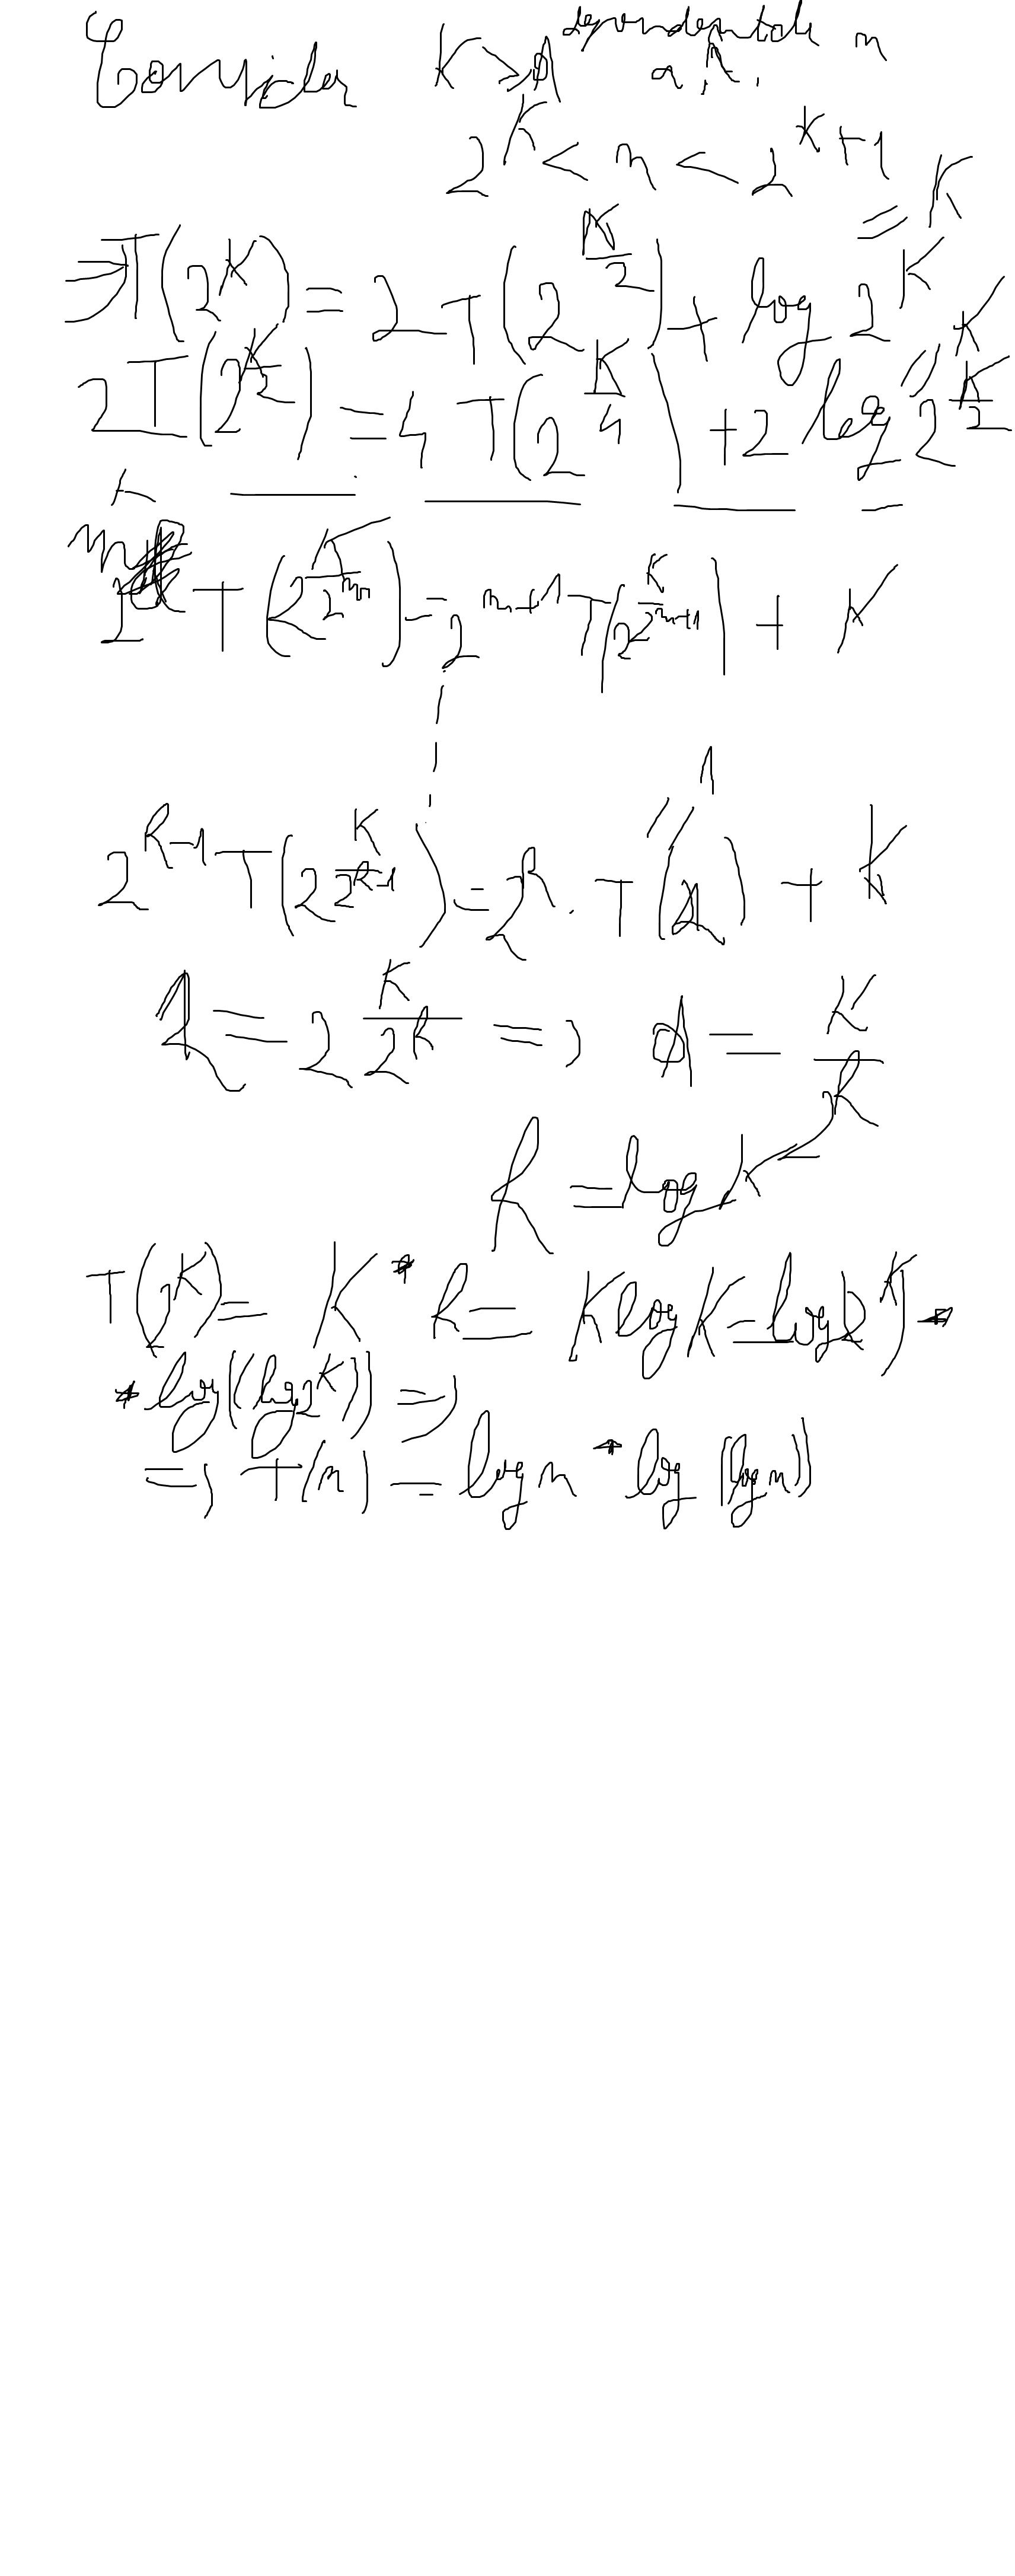 Consider K ⩾ 1 dependent de n a.r.
2^K < n < 2^{K+1}
= K
⇒ T(2^K) = 2 T(2^{K/2}) + log 2^K
2 T(2^{K/2}) = 4 T(2^{K/4}) + 2 log 2^{K/2} = K
2^m T(2^{K/2^m}) = 2^{m+1} T(2^{K/2^{m+1}}) + K
1
2^{R-1} T(2^{K/2^{R-1}}) = 2^R . T(2) + K
2 = 2^{K/2^R} => 1 = K/2^R
R = log K <=
T(2^K) = K * R = K log K = log(2^K) *
* log((log 2^K)) =>
=> T(n) = log n * log (log n))